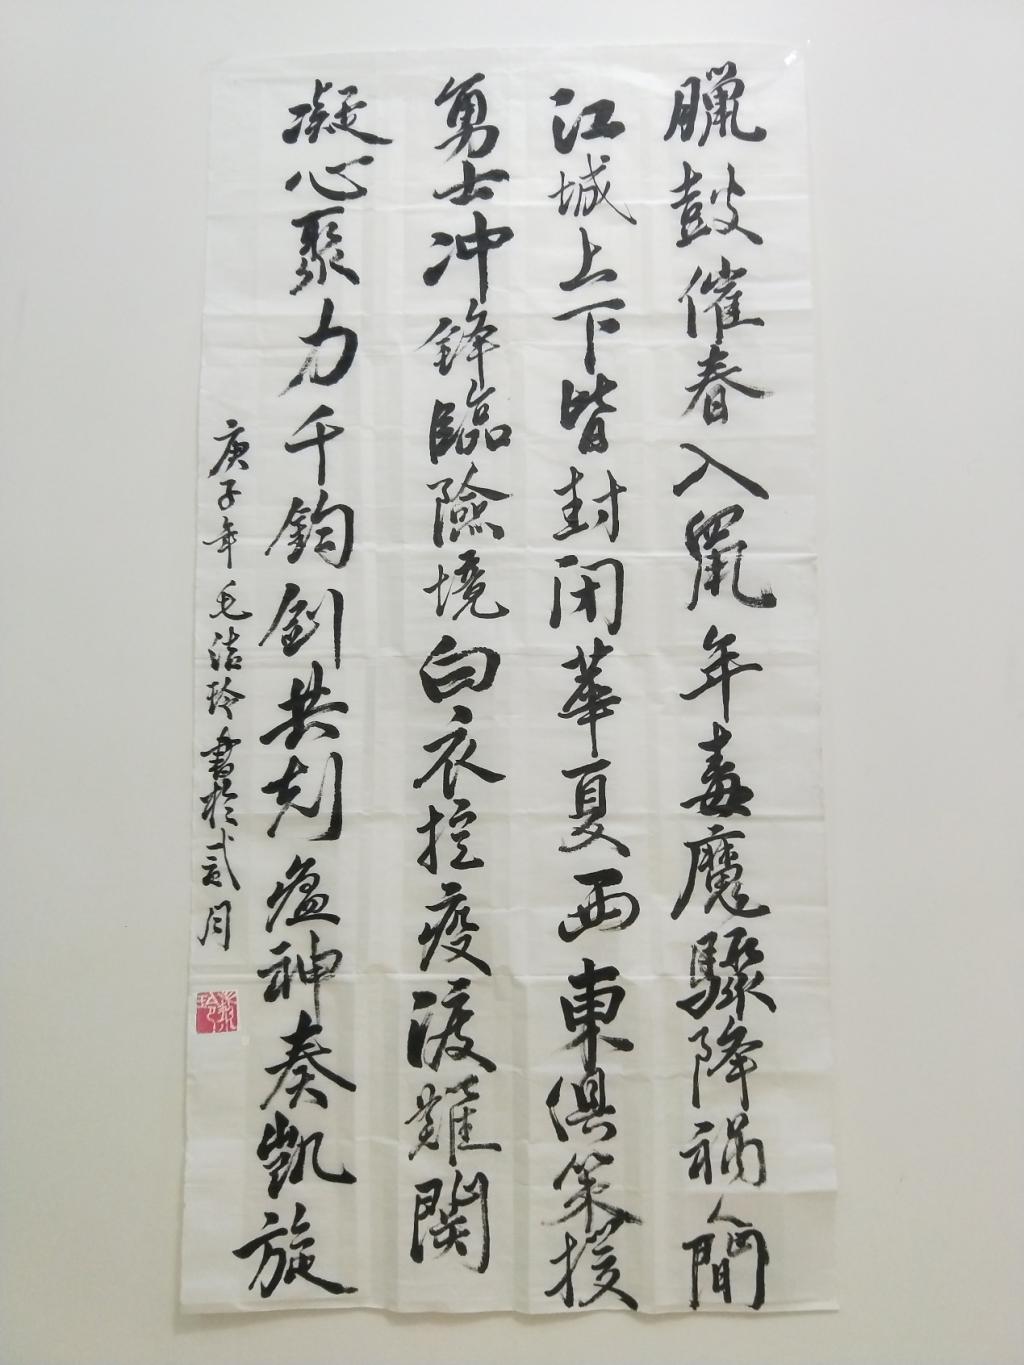 臘鼓催春入鼠年毒魔驟降禍人間
江城上下皆封闭華夏西東俱策援
勇士冲鋒臨險境白衣控疫渡難関
凝心聚力千鈞劍共克瘟神奏凱旋
庚子年毛洁玲書於弍月